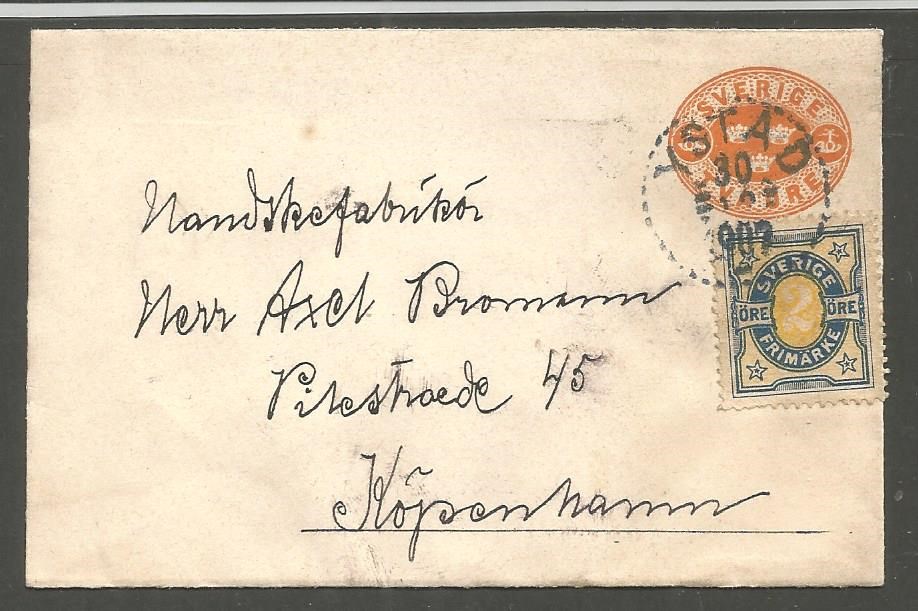 SVERIGE
YSTAD
30
190
SVERIGE
ÖRE 2 ÖRE
FRIMÄRKE
Handskefabrikör
Herr Axel Bromann
Pilestraede 45
Köpenhamn